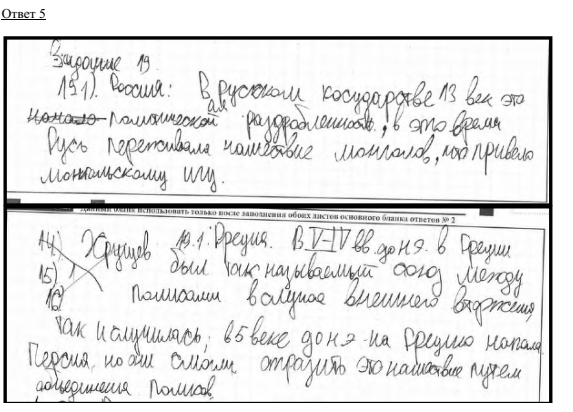 Ответ 5
Задание 19
19.1). Россия: В русском государстве 13 век это
начало политической ая раздробленность, в это время
Русь переживала нашествие монголов, что привело
монгольскому игу.
Данный бланк использовать только после заполнения обоих листов основного бланка ответов № 2
14) Хрущев 19.1. Греция. В V-IV вв. до н.э. в Греции
15) 1 был так называемый союз между
16) полисами в случае внешнего вторжения,
так и случилась, в 5 веке до н э на Грецию напала
Персия, но они смогли отразить это нашествие путем
объединения полисов.